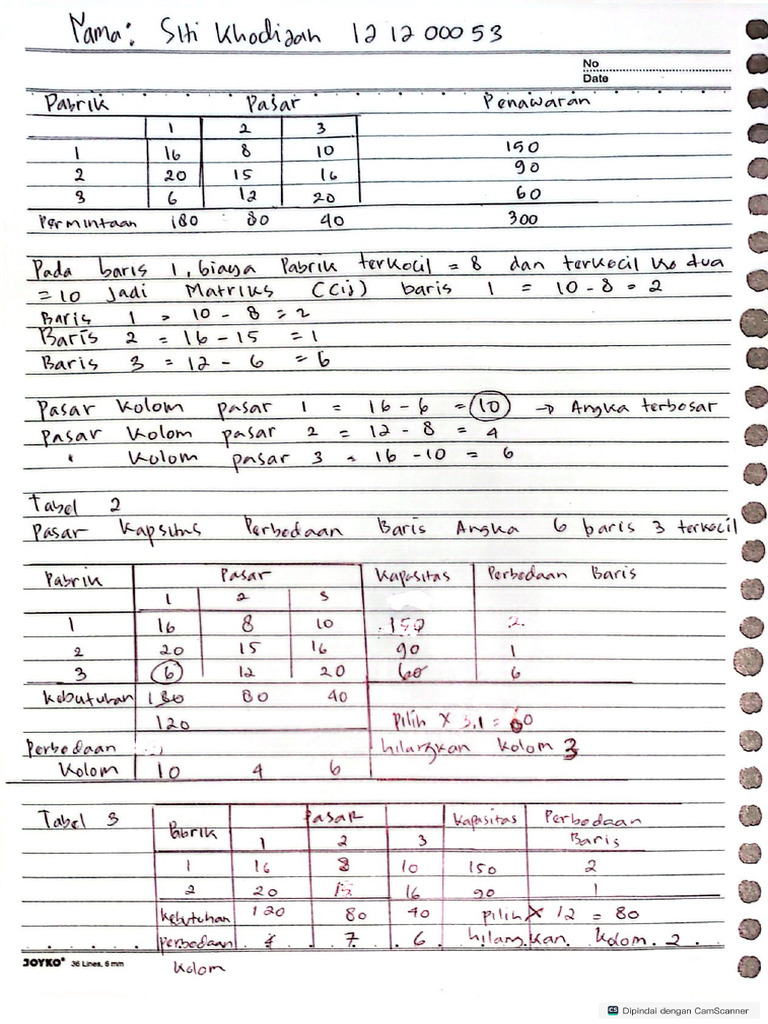 Nama: Siti Khodijah 12 12 000 53
No
Date
Pabrik Pasar Penawaran
1 2 3
1 16 8 10 150
2 20 15 16 90
3 6 12 20 60
Permintaan 180 80 40 300
Pada baris 1, biaya Pabrik terkecil = 8 dan terkecil ke dua
= 10 Jadi Matriks (Cij) baris 1 = 10 - 8 = 2
Baris 1 = 10 - 8 = 2
Baris 2 = 16 - 15 = 1
Baris 3 = 12 - 6 = 6
Pasar Kolom pasar 1 = 16 - 6 = 10 → Angka terbesar
Pasar Kolom pasar 2 = 12 - 8 = 4
" Kolom pasar 3 = 16 - 10 = 6
Tabel 2
Pasar Perbedaan Baris Angka 6 baris 3 terkecil
Pabrik Pasar Kapasitas Perbedaan Baris
1 2 3
1 16 8 10 150 2
2 20 15 16 90 1
3 6 12 20 60 6
Kebutuhan 180 80 40
120 Pilih X 3.1 = 60
Perbedaan hilangkan kolom 3
Kolom 10 4 6
Tabel 3 Pabrik Pasar Kapasitas Perbedaan
1 2 3 Baris
1 16 8 10 150 2
2 20 15 16 90 1
Kebutuhan 120 80 40 pilih X 12 = 80
Perbedaan 4 7 6 hilangkan kolom 2
kolom
JOYKO 36 Lines, 6 mm
CS Dipindai dengan CamScanner